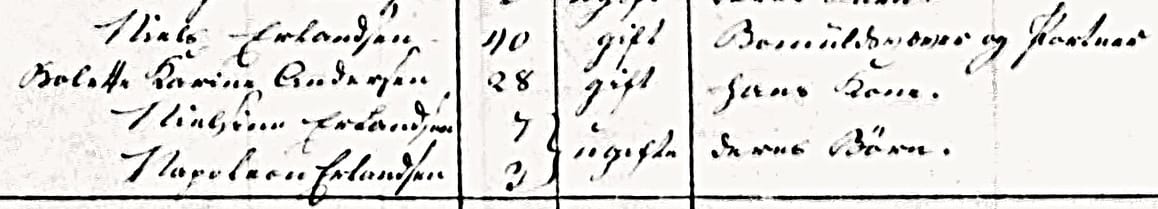 Niels Erlandsen 40 gift Bomuldsvæver og Portner
Bolette Karine Andersen 28 gift hans Kone.
Nielsine Erlandsen 7 ugifte deres Børn.
Napoleon Erlandsen 3